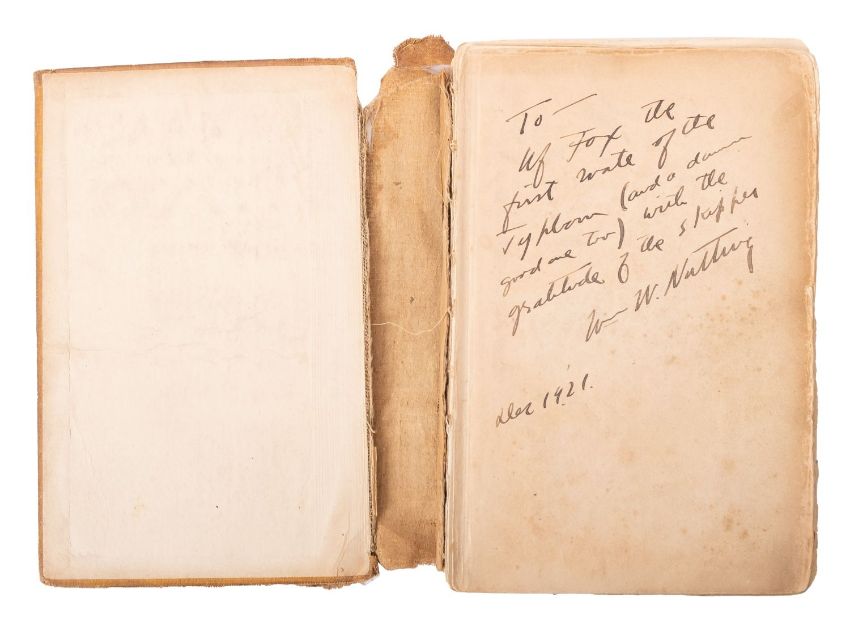 To —
Uf Fox the
first mate of the
Typhoon (and a damn
good one too) with the
gratitude of the skipper
Wm W. Nutting
Dec 1921.